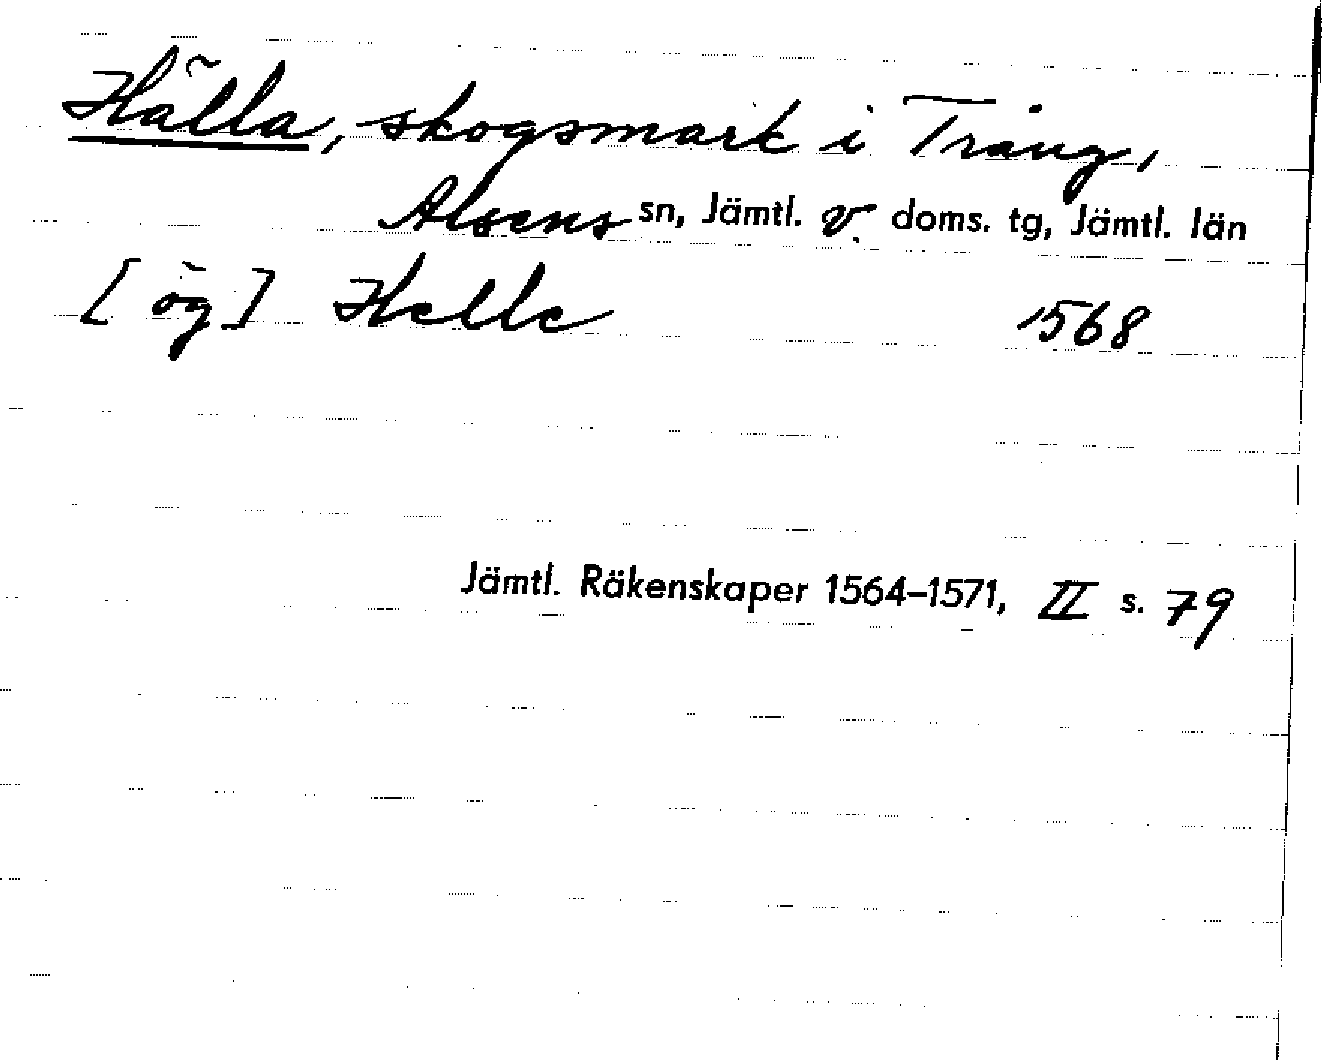 Hälla, skogsmark i Trång,
Alsens sn, Jämtl. v. doms. tg, Jämtl. län
[ög] Helle 1568
Jämtl. Räkenskaper 1564–1571, II s. 79